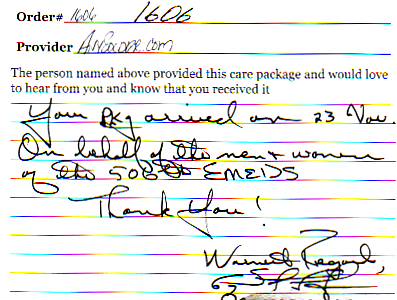 Order# 1606 1606
Provider AnySoldier.com
The person named above provided this care package and would love
to hear from you and know that you received it
Your pkg arrived on 23 Nov.
On behalf of the men & women
of the 506th EMEDS
Thank You!
Warmest Regards,